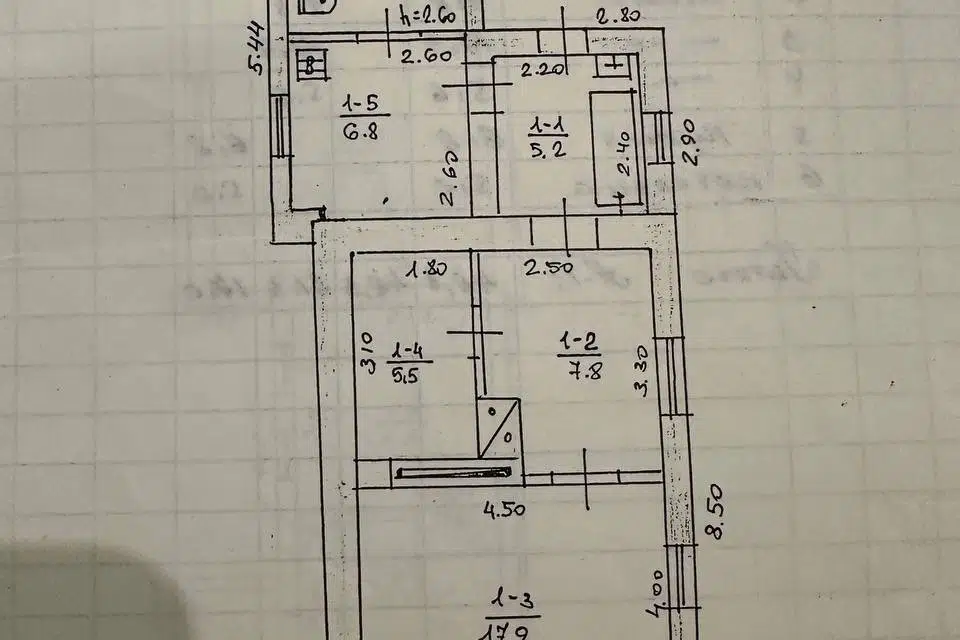 h=2.60
2.80
5.44
2.60
2.20
1-5
6.8
1-1
5.2
2.40
2.90
2.60
1.80
2.50
3.10
1-4
5.5
1-2
7.8
3.30
4.50
8.50
4.00
1-3
17.9